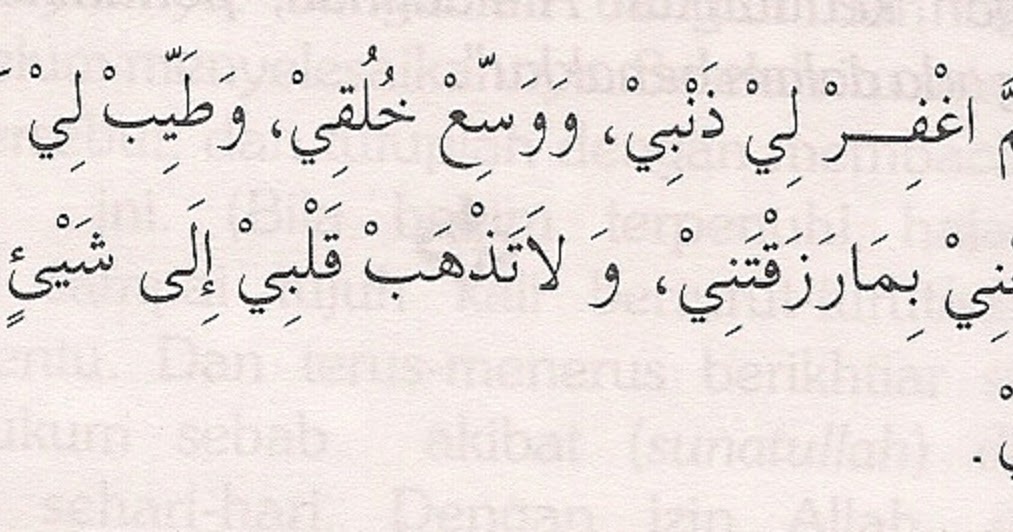 اغْفِـرْ لِيْ ذَنْبِيْ، وَوَسِّعْ خُلُقِيْ، وَطَيِّبْ لِيْ
بِمَارَزَقْتَنِيْ، وَ لاَتَذْهَبْ قَلْبِيْ إِلَى شَيْئٍ